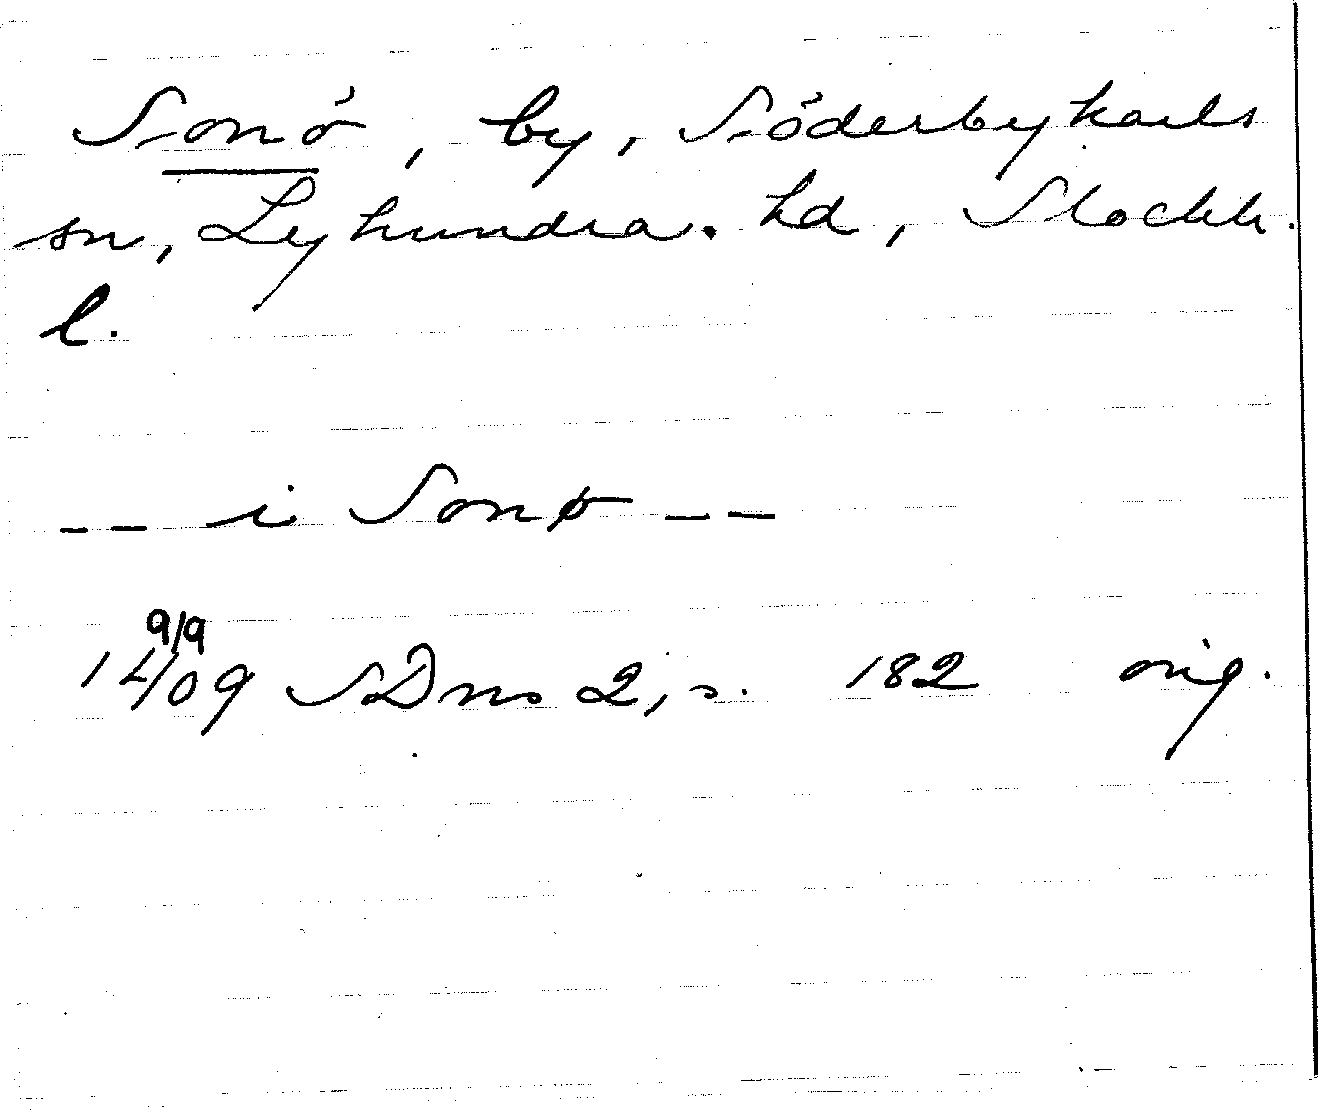 Sonö, by, Söderbykarls
sn, Lyhundra. hd, Stockh.
l.
-- i Sonø --
14 9/9 09 SD ns 2, s. 182 orig.